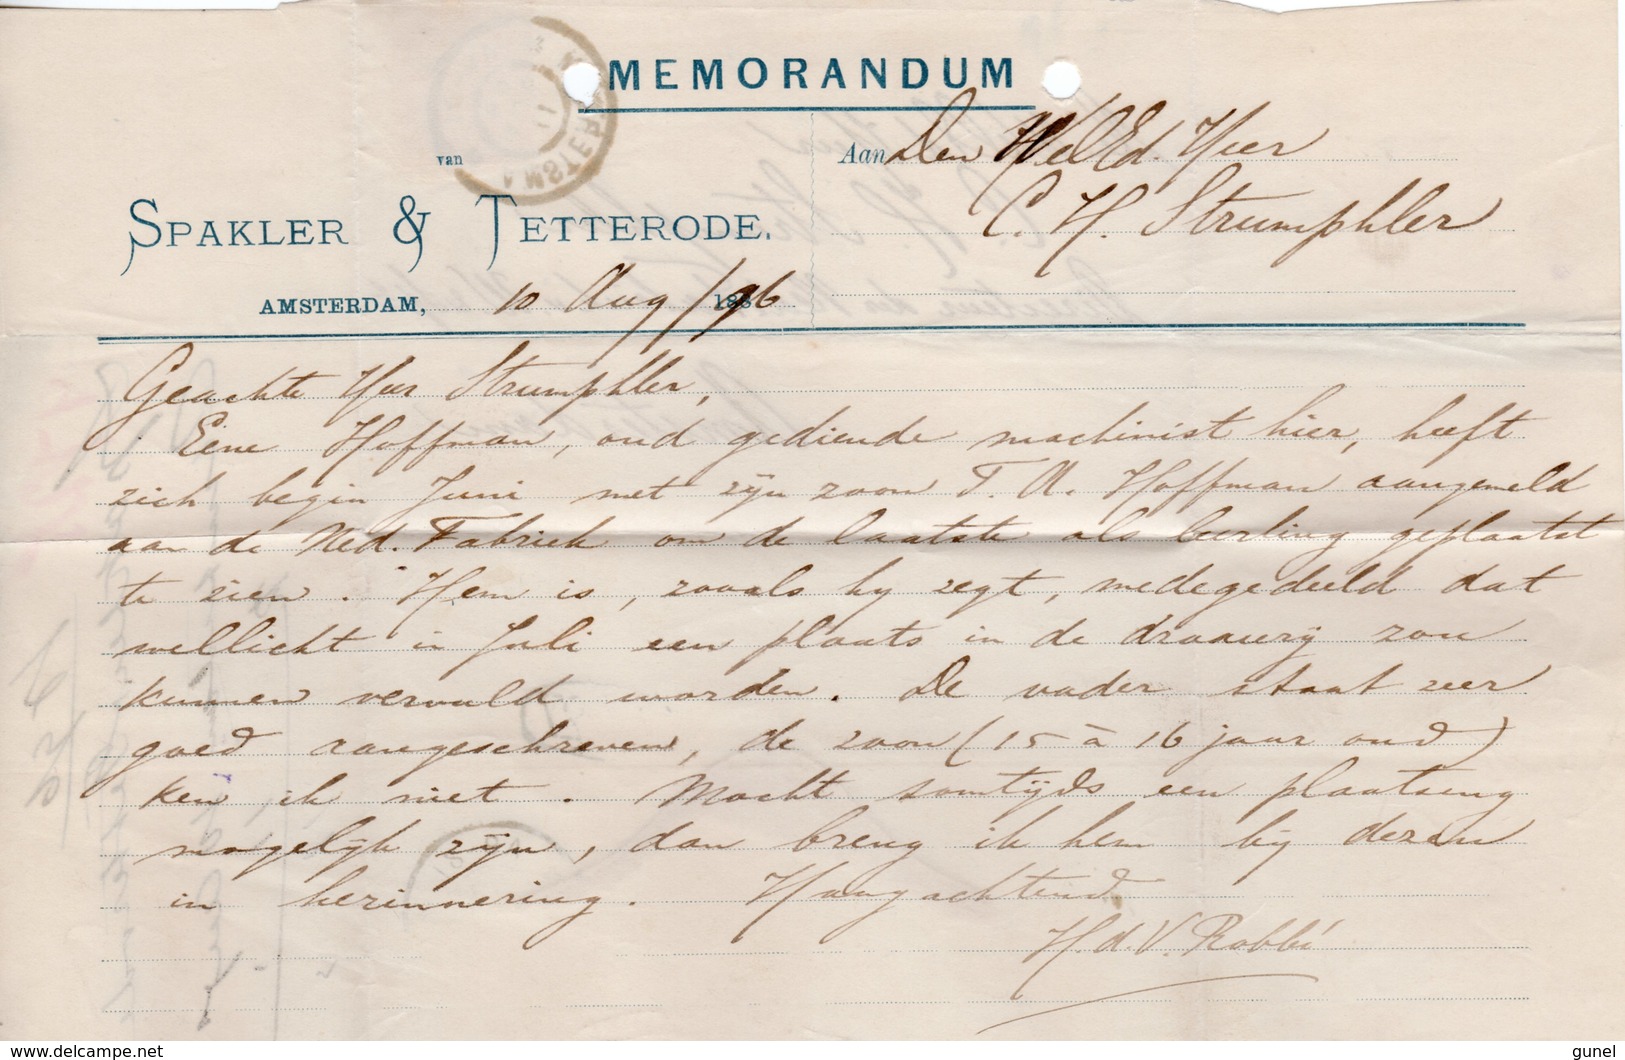 MEMORANDUM
van
SPAKLER & TETTERODE.
AMSTERDAM, 10 Aug / 96
Aan Den WelEd. Heer
C. H. Strumphler
Geachte Heer Strumphler,
Eene Hoffman, oud gediende machinist hier, heeft
zich begin Juni met zijn zoon T. A. Hoffman aangemeld
aan de Ned. Fabriek om de laatste als leerling geplaatst
te zien. Hem is, zooals hy zegt, medegedeeld dat
wellicht in Juli een plaats in de draaiery zou
kunnen vervuld worden. De vader staat zeer
goed aangeschreven, de zoon (15 à 16 jaar oud)
ken ik niet. Mocht somtijds een plaatsing
mogelyk zijn, dan breng ik hem by dezen
in herinnering. Hoogachtend
H. d. V. Robbé
AMSTERDAM
gunel
delcampe.net